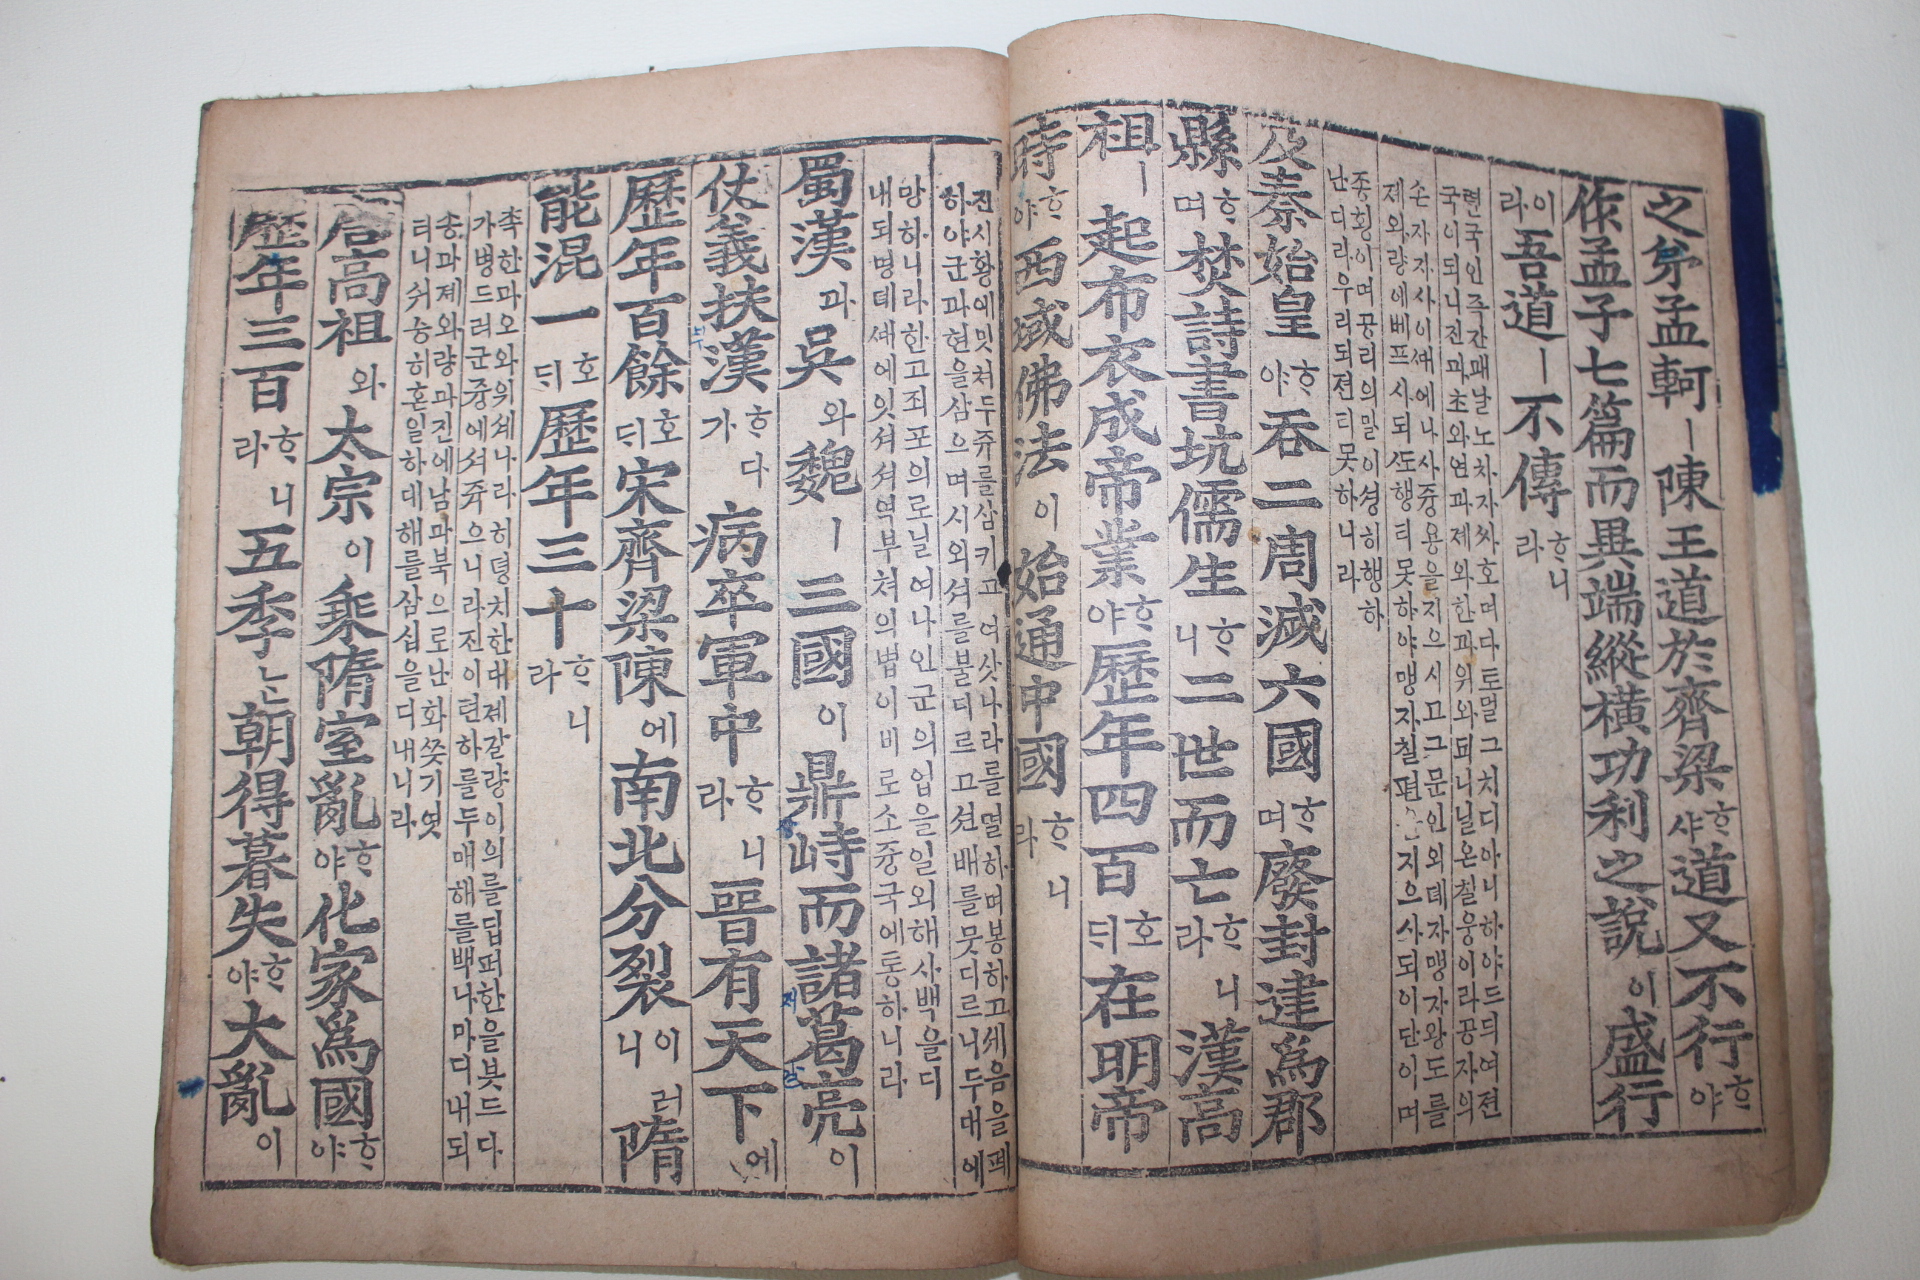 之弟孟軻ㅣ陳王道於齊梁ᄒᆞ샤道又不行ᄒᆞ야
作孟子七篇而異端縱橫功利之說이盛行
이라吾道ㅣ不傳ᄒᆞ니라
렬국인즉간패날노차자싸호며다토멀그치디아니하야드듸여젼
국이되니진과초와연과제와한과위와되니닐온칠웅이라공자의
손자자사이ᄯᅢ에나사즁용을지으시고그문인의뎨자맹자왕도를
제와량에베프시되ᄯᅩ행티못하야맹자칠편은지으사되이단이며
죵횡이며공리의말이셩히행하
난디라우리되젼티못하니라
及秦始皇ᄒᆞ야吞二周滅六國ᄒᆞ며廢封建爲郡
縣ᄒᆞ며焚詩書坑儒生ᄒᆞ니二世而亡ᄒᆞ니라漢高
祖ㅣ起布衣成帝業ᄒᆞ야歷年四百호ᄃᆡ在明帝
時ᄒᆞ야西域佛法이始通中國ᄒᆞ니라
진시황에밋처두쥬를삼키고여삿나라를멸하며봉하고셰음을폐
하야군과현을삼으며시외셔를불디르고션배를뭇디르니두대에
망하니라한고죄포의로닐여나인군의업을일외해사백을디
내되명뎨ᄯᅢ에잇셔셔역부쳐의법이비로소즁국에통하니라
蜀漢과吳와魏ㅣ三國이鼎峙而諸葛亮이
仗義扶漢ᄒᆞ다가病卒軍中ᄒᆞ니라晉有天下에
歷年百餘호ᄃᆡ宋齊梁陳에南北分裂이러니隋
能混一호ᄃᆡ歷年三十ᄒᆞ니라
촉한과오와위세나라히뎡치한대졔갈량이의를딥퍼한을븟드다
가병드러군즁에셔쥭으니라진이텬하를두매해를백나마디내되
송과졔와량과진에남과북으로난화ᄶᅵᆺ기엿
터니쉬승히혼일하대해를삼십을디내니라
唐高祖와太宗이乘隋室亂ᄒᆞ야化家爲國ᄒᆞ야
歷年三百ᄒᆞ니라五季ᄂᆞᆫ朝得暮失ᄒᆞ야大亂이